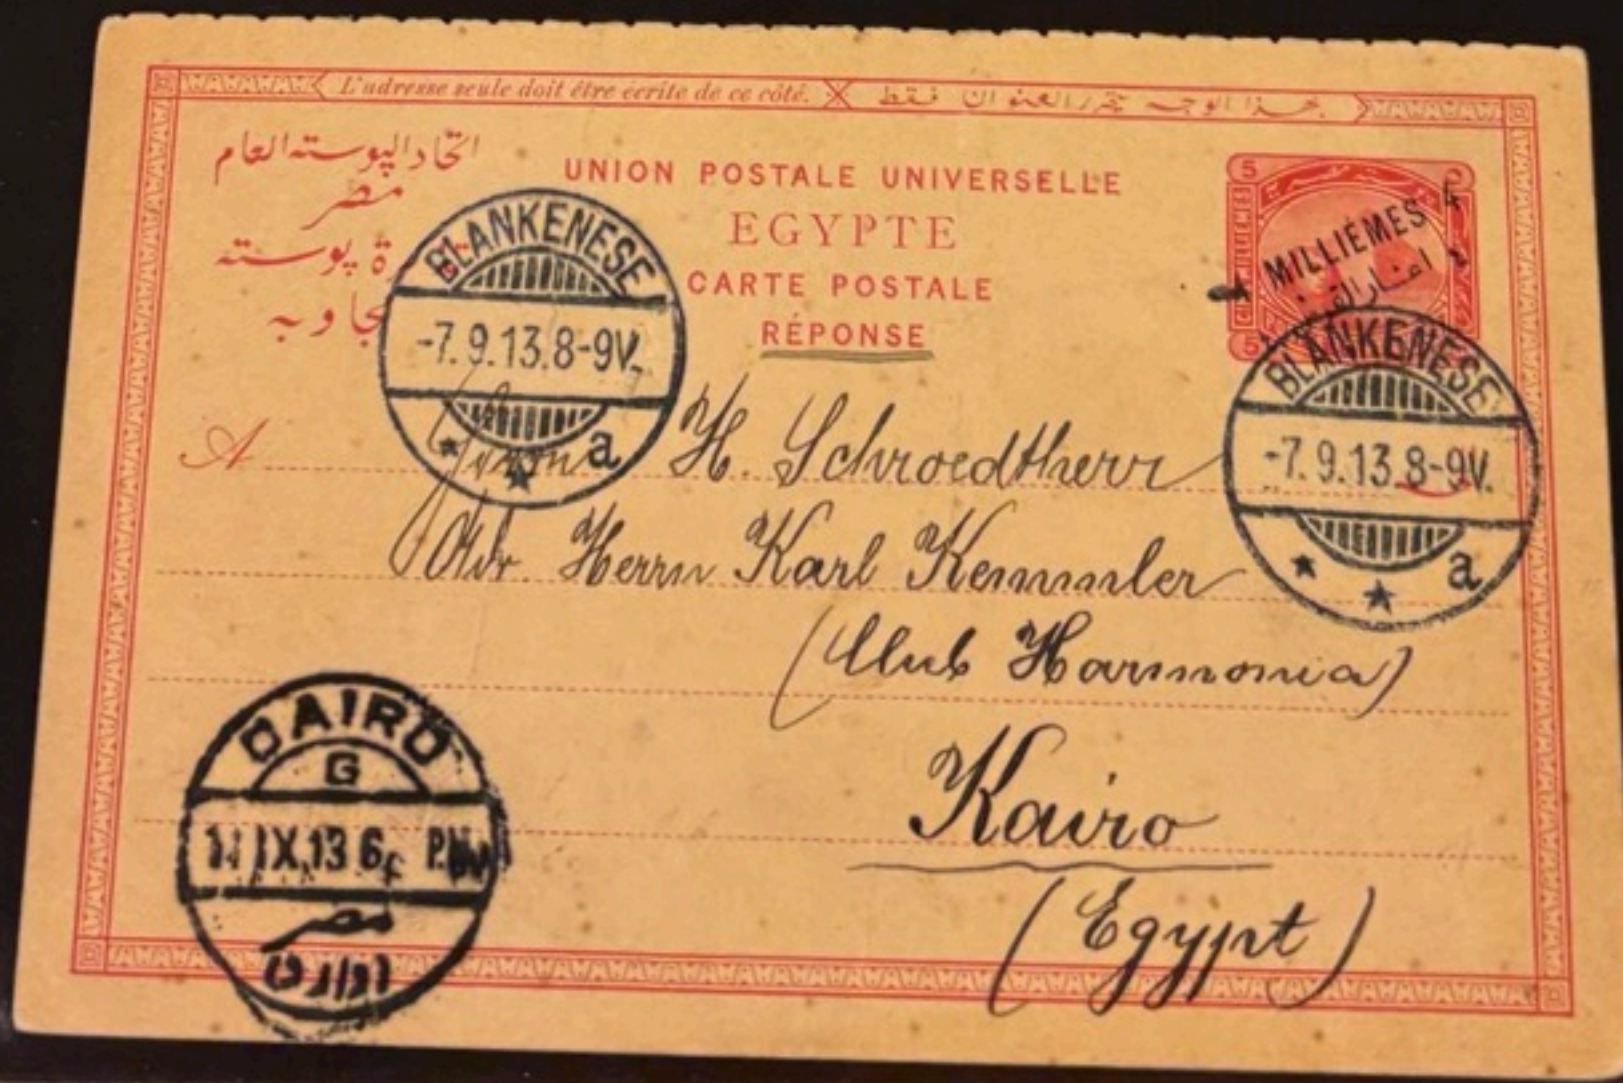 L'adresse seule doit être écrite de ce côté. بهذا الوجه يحرر العنوان فقط
اتحاد البوسته العام
مصر
ة بوسته
مجاوبه
UNION POSTALE UNIVERSELLE
EGYPTE
CARTE POSTALE
RÉPONSE
5
MILLIEMES
4 MILLIÈMES 4
5
BLANKENESE
-7.9.13.8-9V.
a
BLANKENESE
-7.9.13.8-9V.
a
A H. Schroedtherr
Adr. Herrn Karl Kemmler
(Club Harmonia)
Kairo
(Egypt)
CAIRO
G
IX.13 6 P.M
مصر